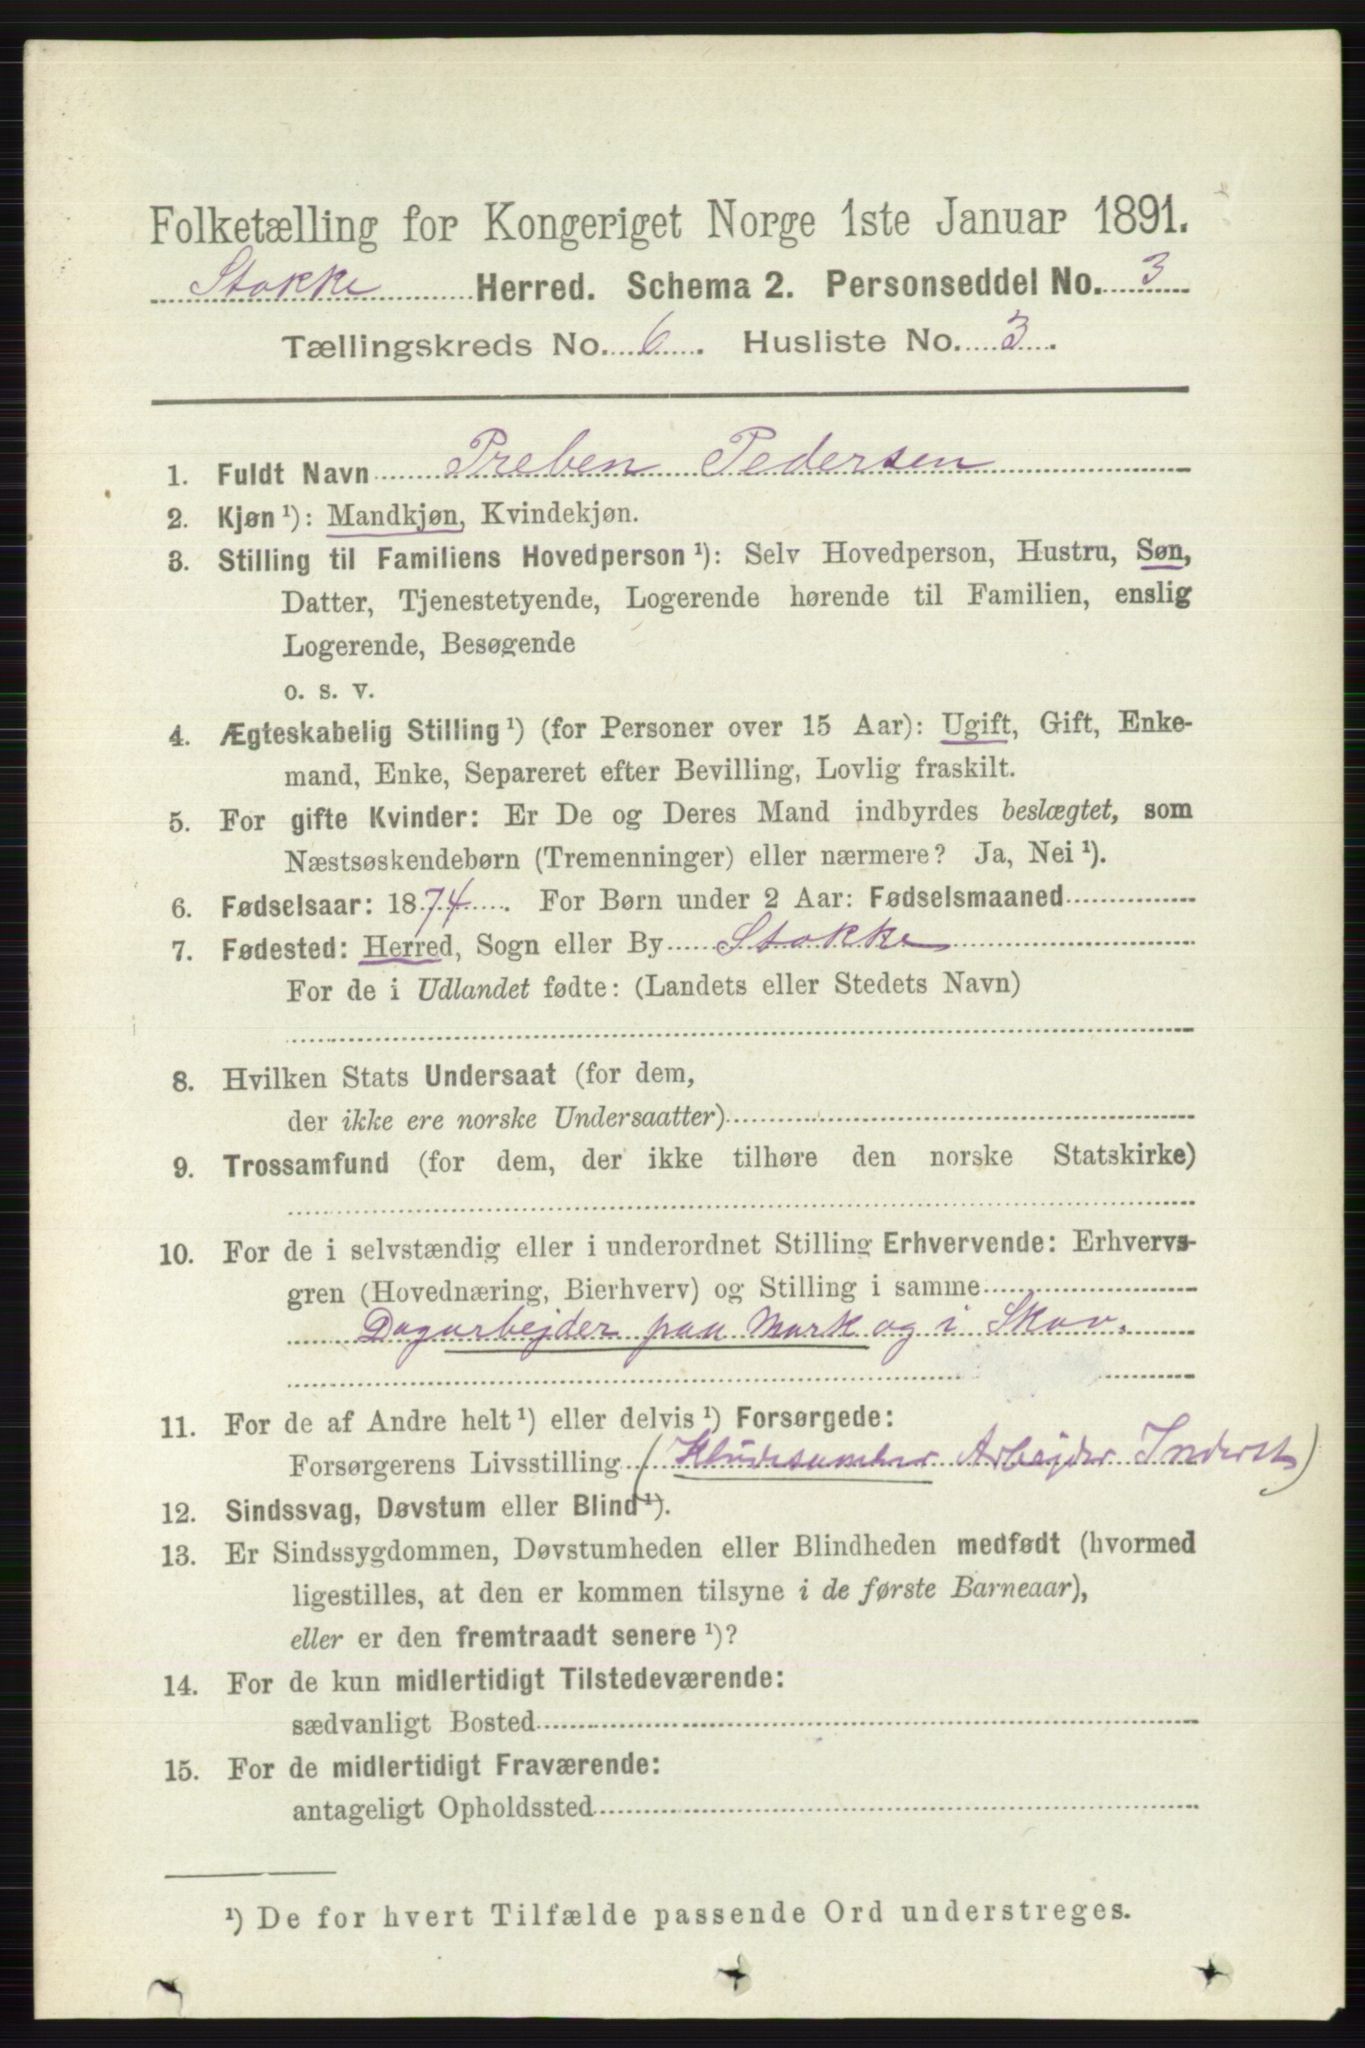 Folketælling for Kongeriget Norge 1ste Januar 1891.
Stokke Herred. Schema 2. Personseddel No. 3
Tællingskreds No. 6. Husliste No. 3.
1. Fuldt Navn Preben Pedersen
2. Kjøn ¹): Mandkjøn, Kvindekjøn.
3. Stilling til Familiens Hovedperson ¹): Selv Hovedperson, Hustru, Søn,
Datter, Tjenestetyende, Logerende hørende til Familien, enslig
Logerende, Besøgende
o. s. v.
4. Ægteskabelig Stilling ¹) (for Personer over 15 Aar): Ugift, Gift, Enke-
mand, Enke, Separeret efter Bevilling, Lovlig fraskilt.
5. For gifte Kvinder: Er De og Deres Mand indbyrdes beslægtet, som
Næstsøskendebørn (Tremenninger) eller nærmere? Ja, Nei ¹).
6. Fødselsaar: 1874. For Børn under 2 Aar: Fødselsmaaned
7. Fødested: Herred, Sogn eller By Stokke
For de i Udlandet fødte: (Landets eller Stedets Navn)
8. Hvilken Stats Undersaat (for dem,
der ikke ere norske Undersaatter)
9. Trossamfund (for dem, der ikke tilhøre den norske Statskirke)
10. For de i selvstændig eller i underordnet Stilling Erhvervende: Erhvervs-
gren (Hovednæring, Bierhverv) og Stilling i samme
Dagarbejder paa Mark og i Skov.
11. For de af Andre helt ¹) eller delvis ¹) Forsørgede:
Forsørgerens Livsstilling ( Arbejder Inderst)
12. Sindssvag, Døvstum eller Blind ¹).
13. Er Sindssygdommen, Døvstumheden eller Blindheden medfødt (hvormed
ligestilles, at den er kommen tilsyne i de første Barneaar),
eller er den fremtraadt senere ¹)?
14. For de kun midlertidigt Tilstedeværende:
sædvanligt Bosted
15. For de midlertidigt Fraværende:
antageligt Opholdssted
¹) De for hvert Tilfælde passende Ord understreges.